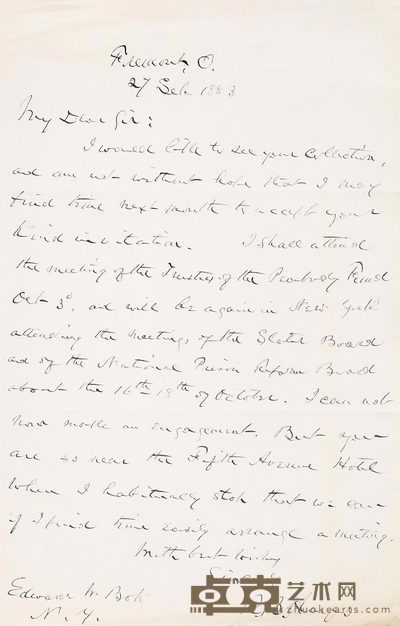 Fremont, O.
27 Sep 1883
My Dear Sir:
I would like to see your collection,
and am not without hope that I may
find time next month to accept your
kind invitation. I shall attend
the meeting of the Trustees of the Peabody Fund
Oct 3d, and will be again in New York
attending the meetings of the Slater Board
and of the National Prison Reform Board
about the 16th-19th of October. I can not
now make an engagement. But you
are so near the Fifth Avenue Hotel
where I habitually stop that we can
if I find time easily arrange a meeting.
With best wishes
Sincerely
R. B. Hayes
Edward W. Bok
N. Y.
艺术网